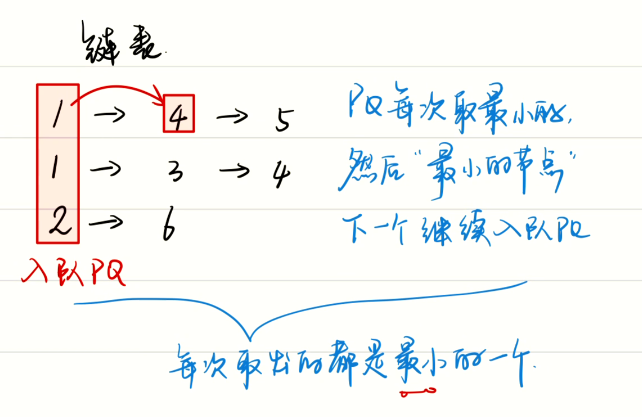 链表.
1 → 4 → 5
1 → 3 → 4
2 → 6
入队PQ
PQ每次取最小的,
然后“最小的节点”
下一个继续入队PQ
每次取出的都是最小的一个.